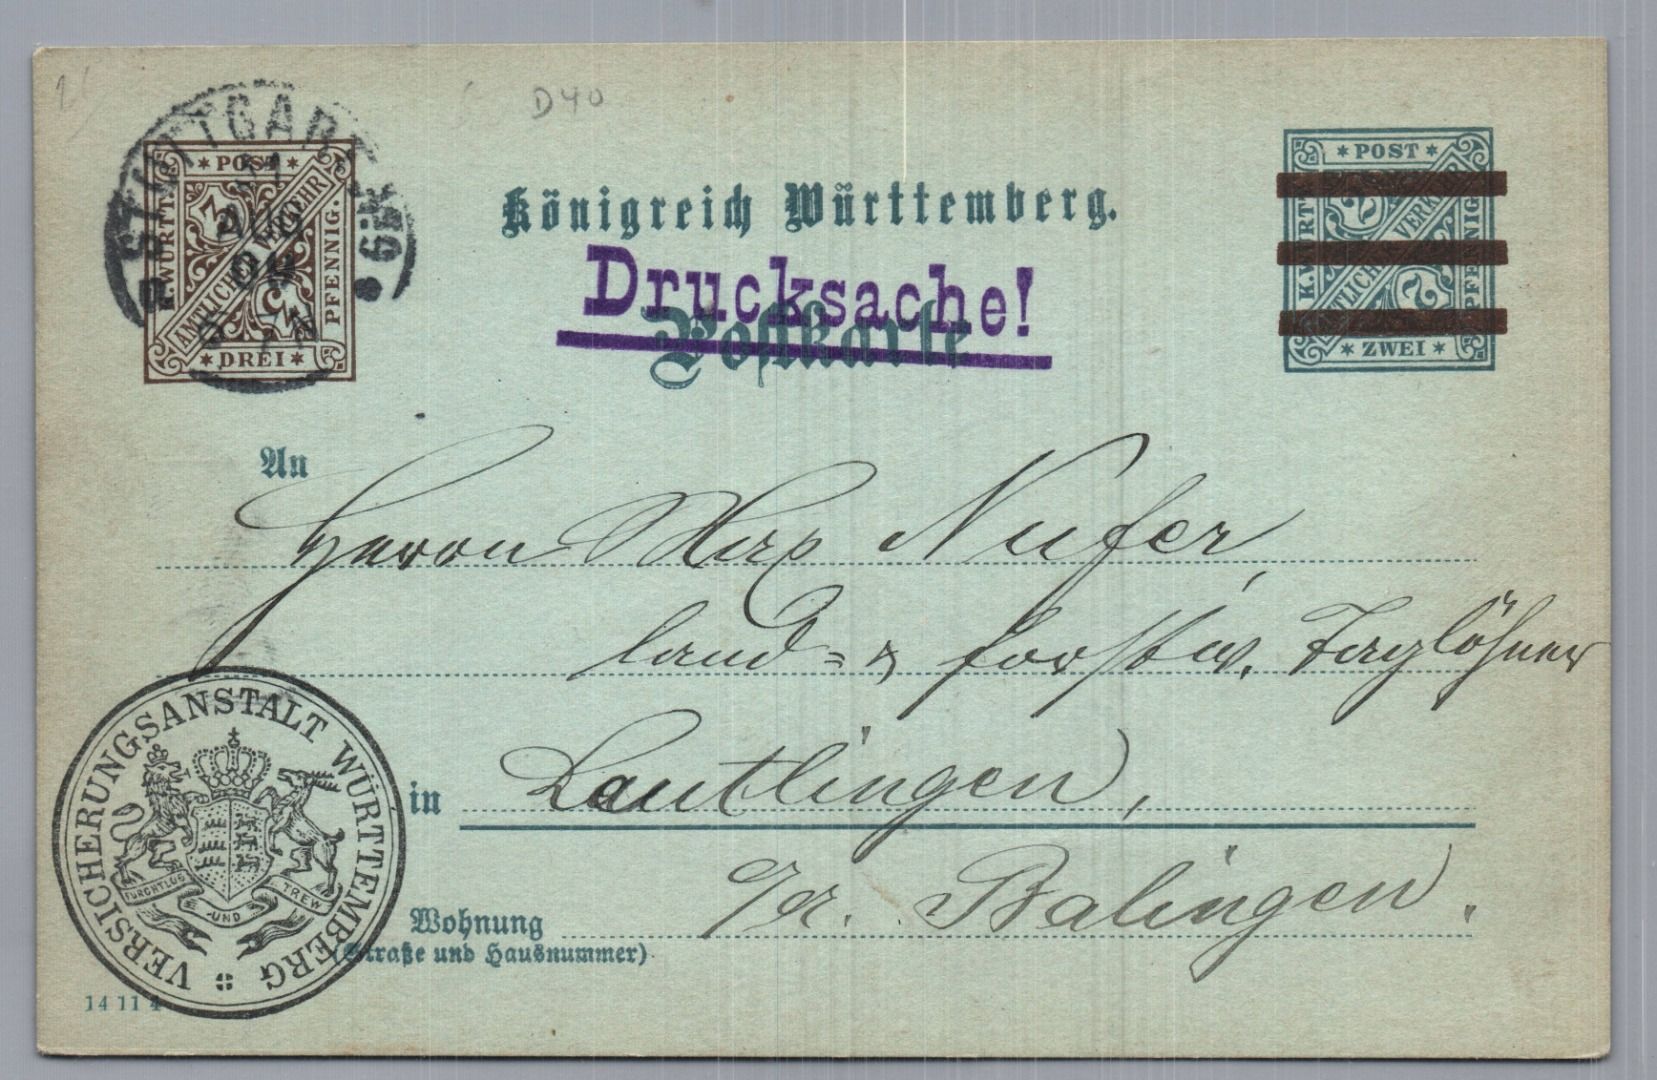 D40
STUTTGART
AUG
* POST *
K.WÜRTT.
AMTLICHER VERKEHR
PFENNIG
3
* DREI *
Königreich Württemberg.
* POST *
K.WÜRTT.
AMTLICHER VERKEHR
PFENNIG
2
* ZWEI *
Drucksache!
Postkarte
An
Herrn Nufer
land- & forstw. Taglöhner
in Lautlingen,
O/A. Balingen.
Wohnung
(Straße und Hausnummer)
VERSICHERUNGSANSTALT WÜRTTEMBERG
FURCHTLOS UND TREW
14 11 4